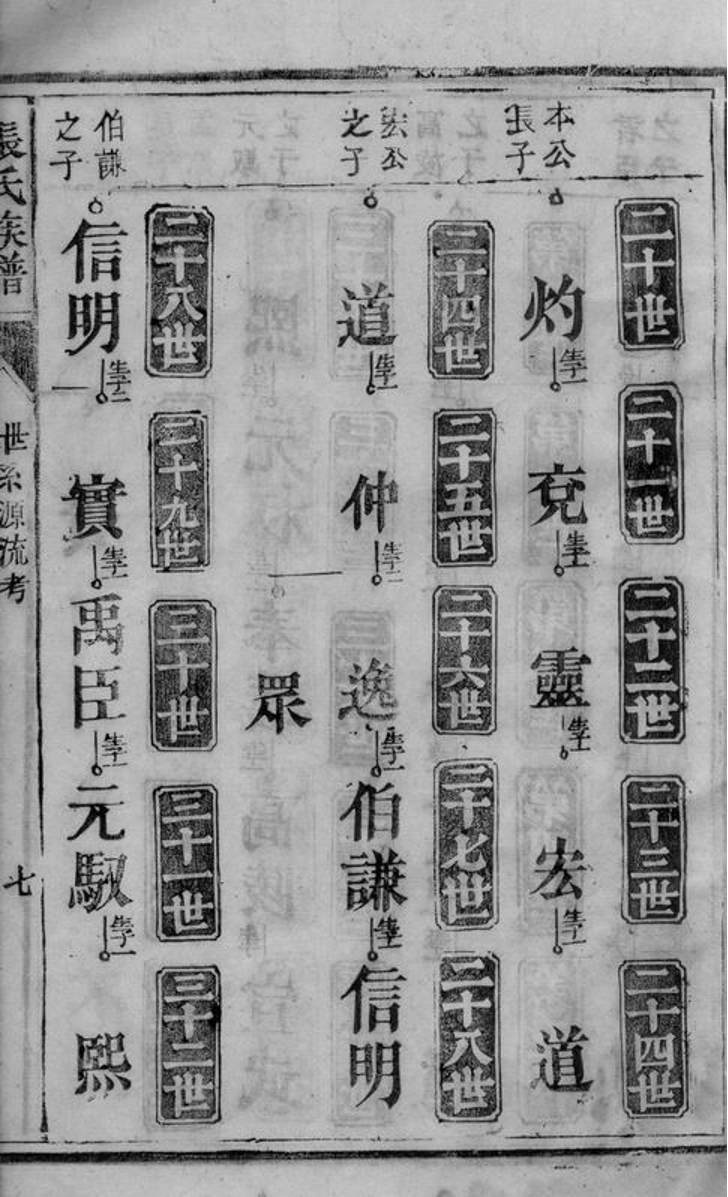 二十世
二十一世
二十二世
二十三世
二十四世
本公
張子
灼
生子一
兗
生子一
靈
生子一
宏
生子一
道
二十四世
二十五世
二十六世
二十七世
二十八世
宏公
之子
道
生子一
仲
生子二
逸
生子一
伯謙
生子一
信明
眾
二十八世
二十九世
三十世
三十一世
三十二世
伯謙
之子
信明
生子二
實
生子一
禹臣
生子一
元馭
生子一
熙
張氏族譜
世系源流考
七